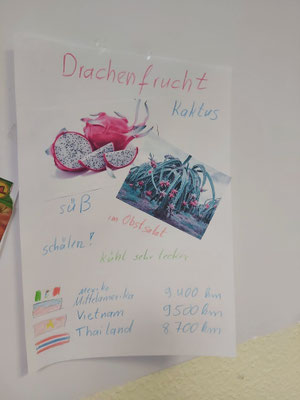 Drachenfrucht
Kaktus
süß
im Obstsalat
schälen!
kühl sehr lecker
Mexiko
Mittelamerika 9.400 km
Vietnam 9500 km
Thailand 8.700 km